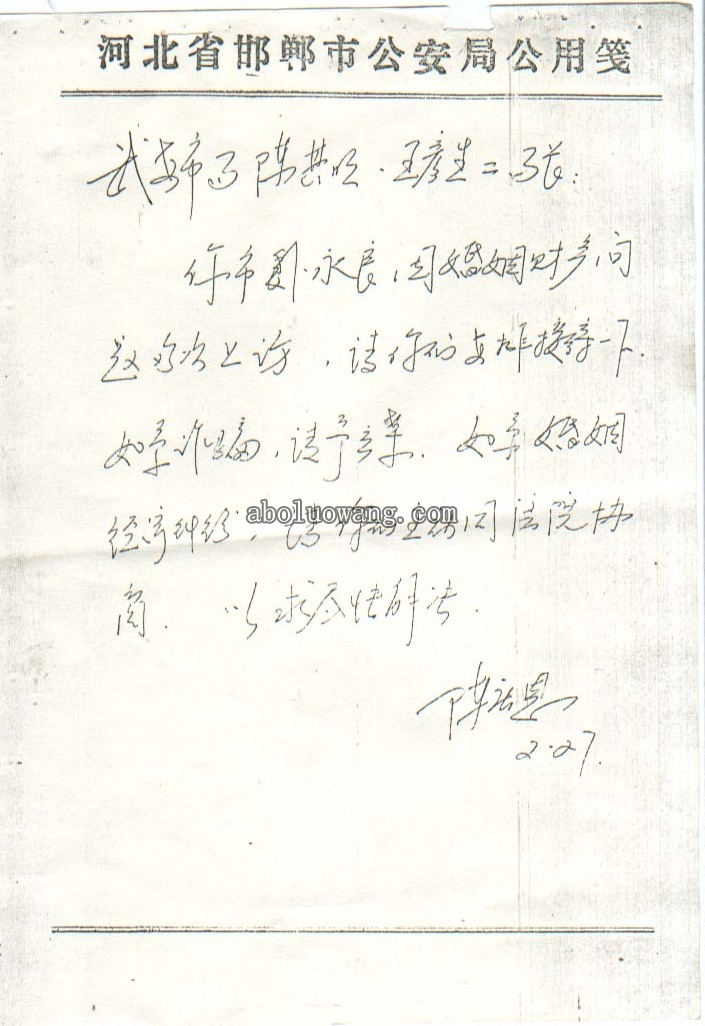 河北省邯郸市公安局公用笺
武安市局陈其明、王彦生二局长：
你市郭永良，因婚姻财产问
题多次上访，请你们安排接待一下.
如系诈骗，请予立案. 如系婚姻
经济纠纷，请 同法院协
商. 以求尽快解决.
aboluowang.com
陈
2.27.